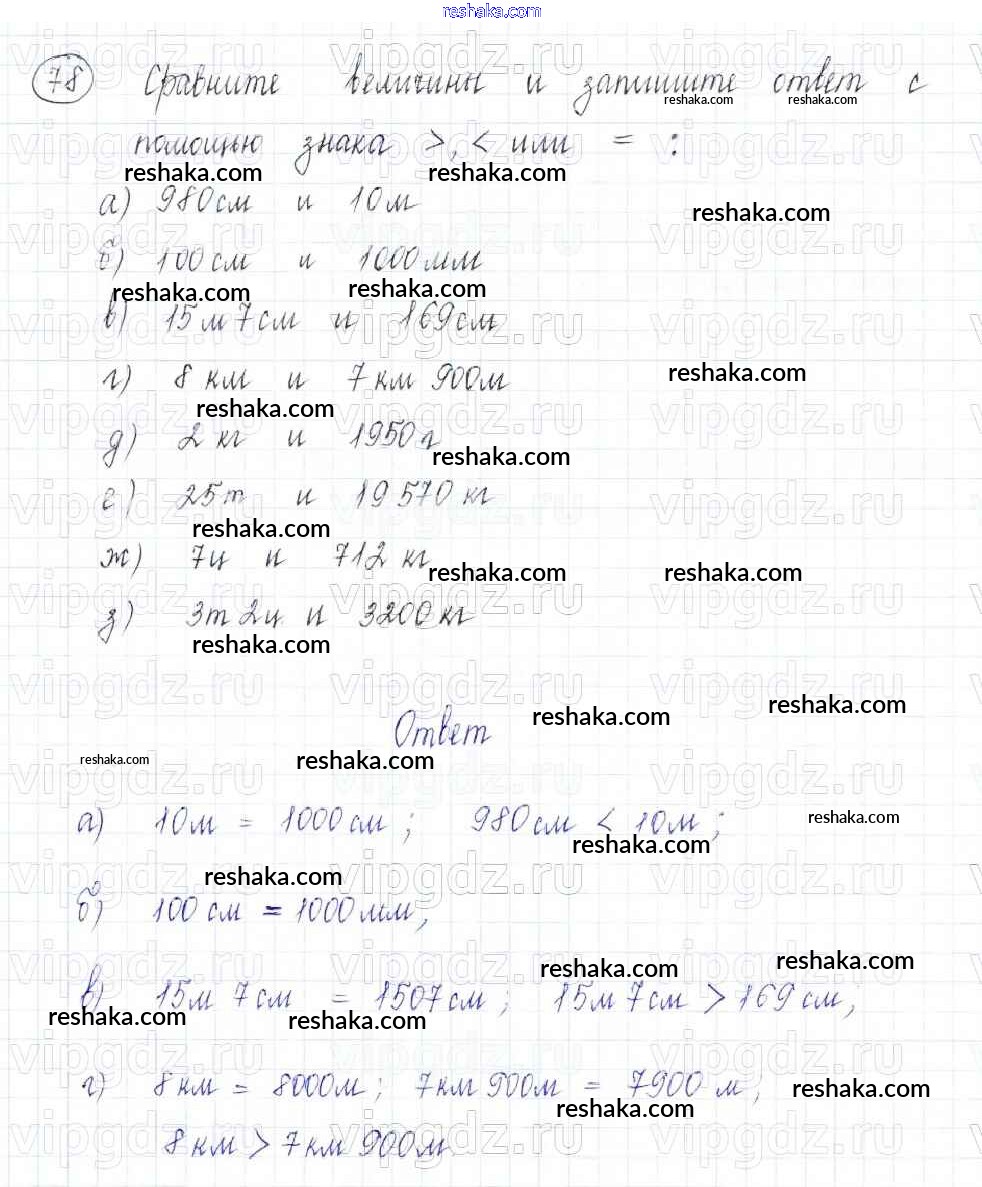 reshaka.com
78 Сравните величины и запишите ответ с
помощью знака >, < или = :
а) 980 см и 10 м
б) 100 см и 1000 мм
в) 15 м 7 см и 169 см
г) 8 км и 7 км 900 м
д) 2 кг и 1950 г
е) 25 т и 19 570 кг
ж) 7 ц и 712 кг
з) 3 т 2 ц и 3200 кг
Ответ
а) 10 м = 1000 см ; 980 см < 10 м ;
б) 100 см = 1000 мм,
в) 15 м 7 см = 1507 см ; 15 м 7 см > 169 см,
г) 8 км = 8000 м ; 7 км 900 м = 7900 м ;
8 км > 7 км 900 м